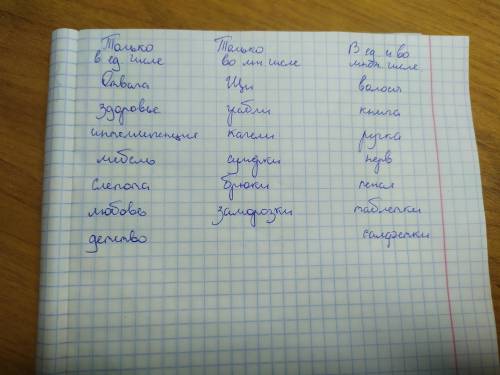 Только Только В ед. и во
в ед. числе во мн числе множ. числе
Отвага Щи волосы
здоровье грабли книга
интеллигенция качели ручка
мебель сумерки нерв
слепота брюки пенал
любовь заморозки таблетки
детство салфетки